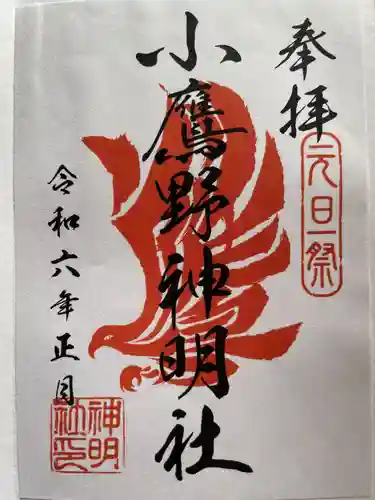 奉拝
元旦祭
小鷹野神明社
令和六年正月
神明社印